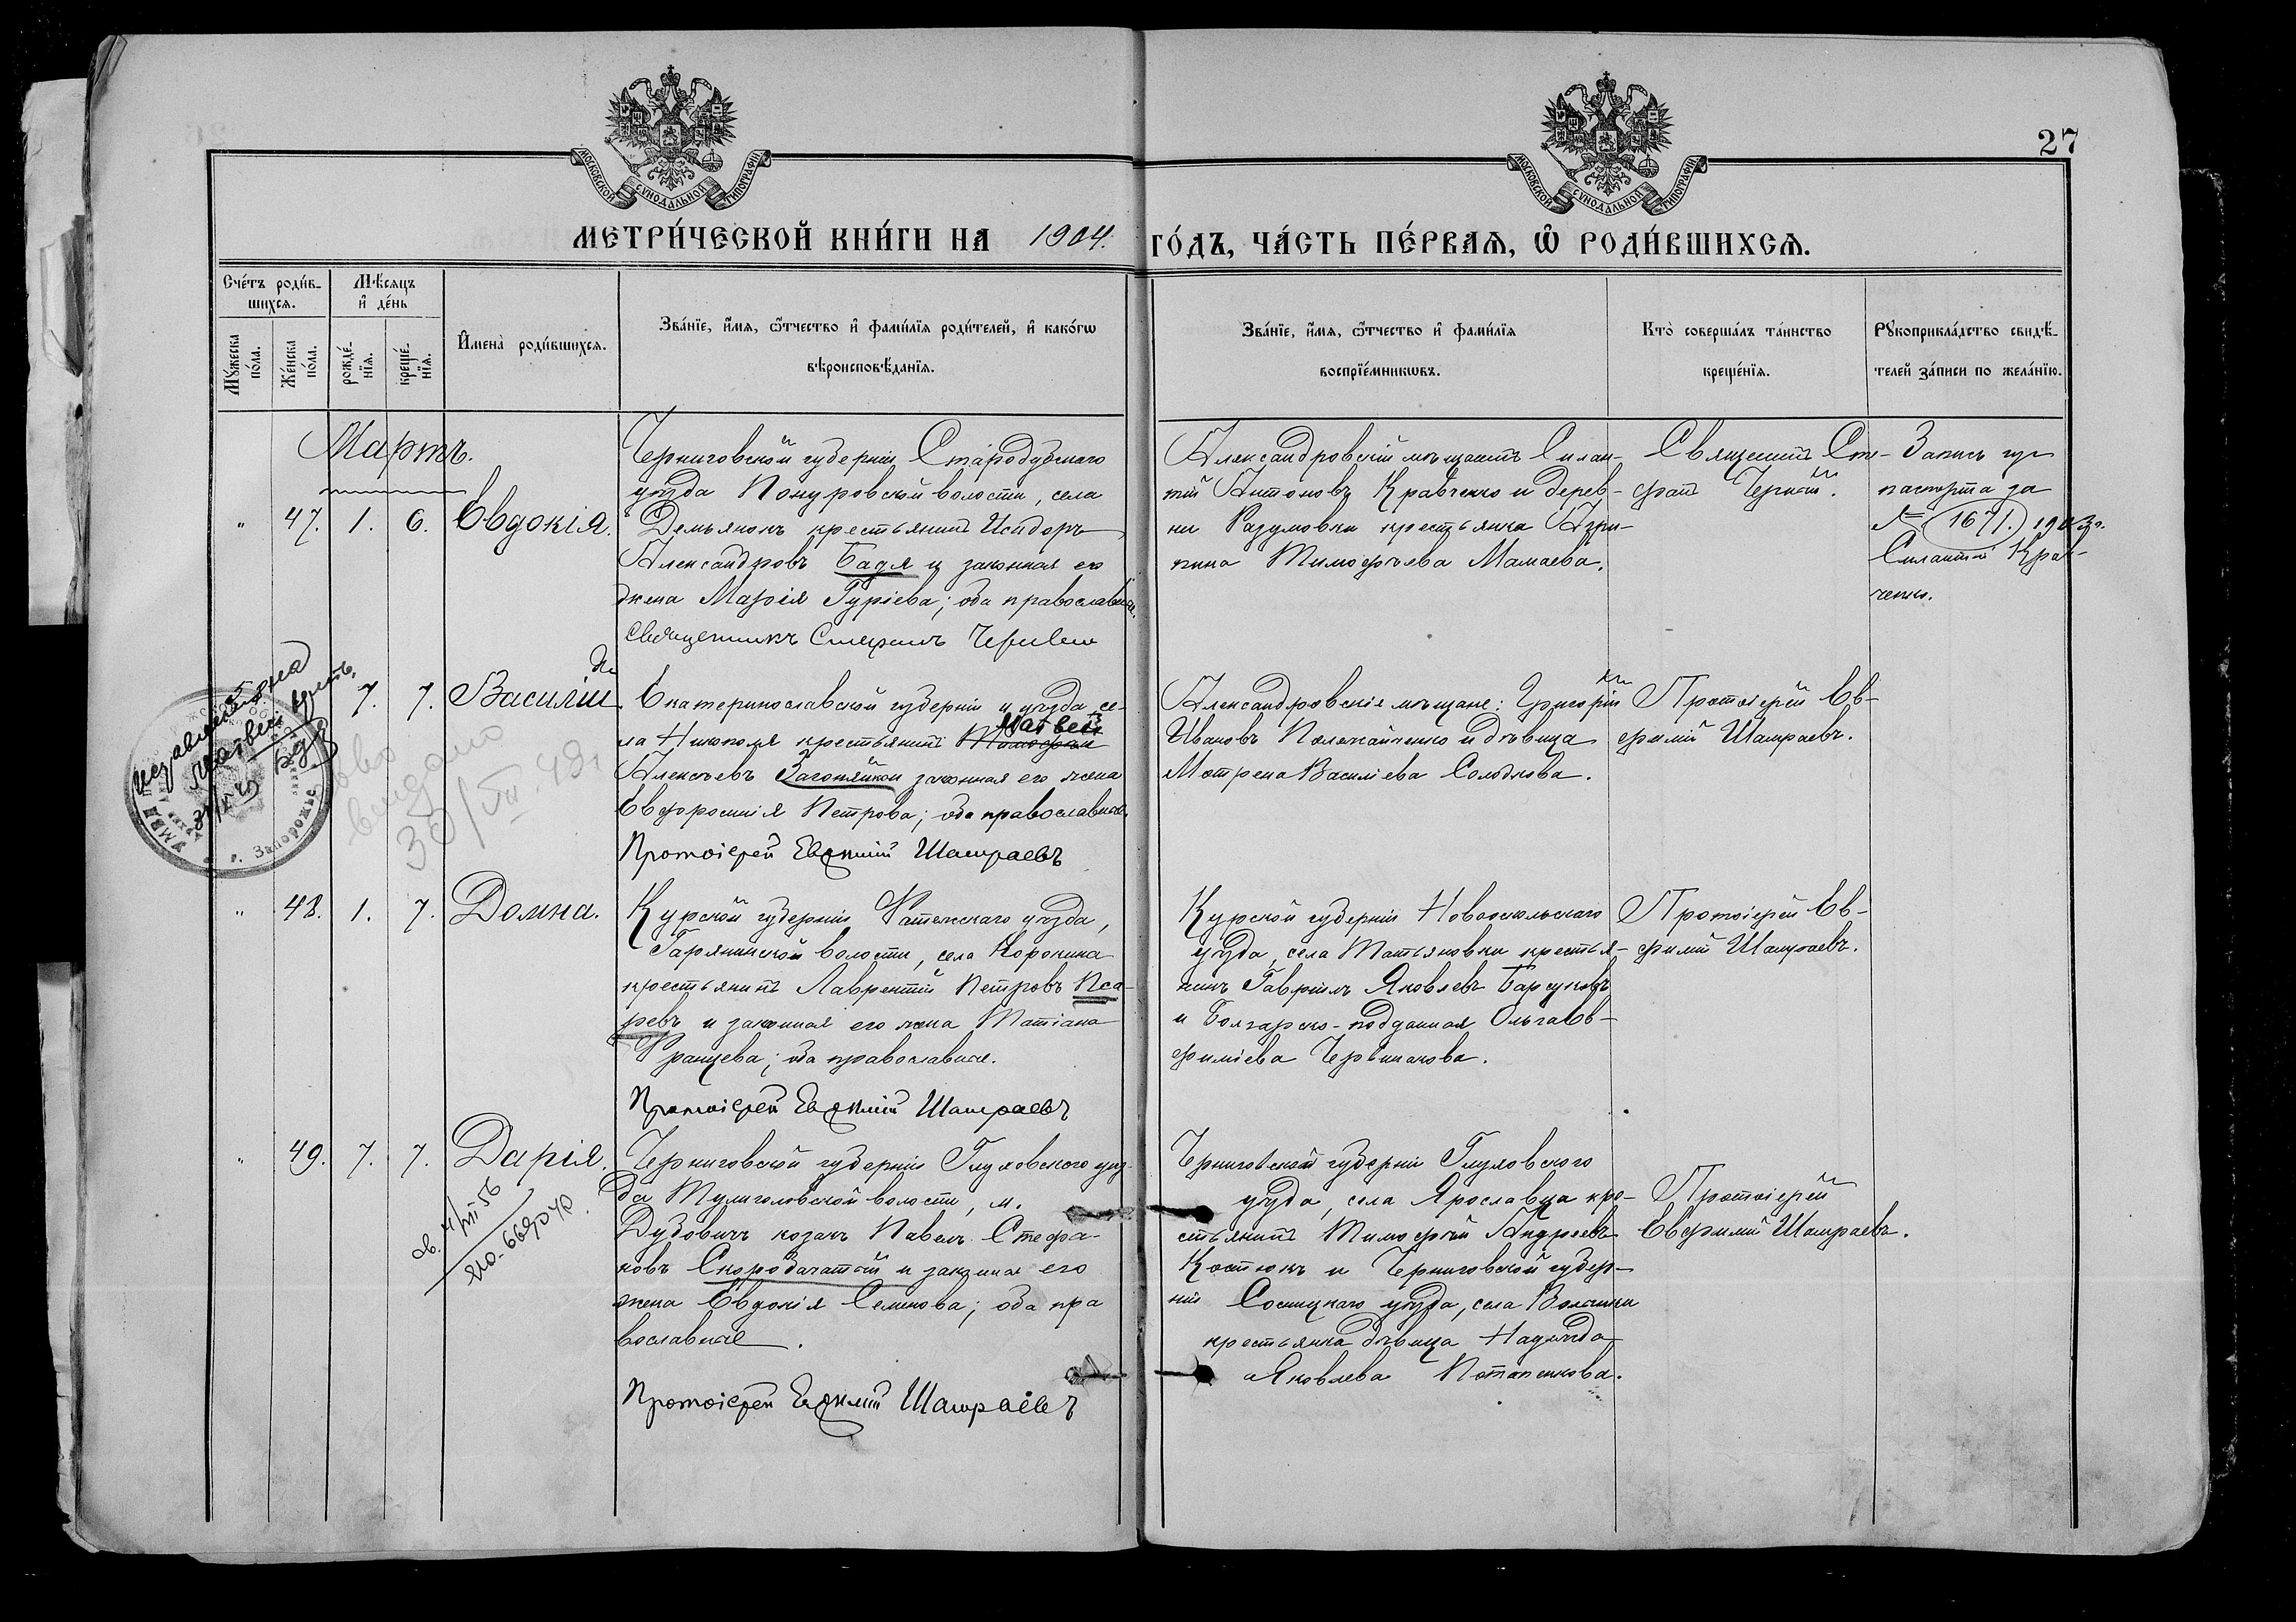 27
МОСКОВСКОЙ СѴНОДАЛЬНОЙ ТИПОГРАФІИ
МОСКОВСКОЙ СѴНОДАЛЬНОЙ ТИПОГРАФІИ
МЕТРИ́ЧЕСКОЙ КНИ́ГИ НА 1904. ГО́ДЪ, ЧА́СТЬ ПЕ́РВАЯ, Ѡ РОДИ́ВШИХСЯ.
Сче́тъ роди́в-
шихся.
Му́жеска по́ла.
Же́нска по́ла.
Мѣ́сяцъ
и҆ де́нь
рожде́-
нїя.
креще́-
нїя.
И҆мена̀ роди́вшихся.
Зва́нїе, и҆́мя, ѻ҆́тчество и҆ фами́лїя роди́телей, и҆ како́гѡ
вѣроисповѣ́данїя.
Зва́нїе, и҆́мя, ѻ҆́тчество и҆ фами́лїя
воспрїе́мникѡвъ.
Кто̀ соверша́лъ та́инство
креще́нїя.
Рꙋкоприкла́дство свидѣ́-
телей за́писи по жела́нїю.
Мартъ.
" 47. 1. 6. Евдокія.
Черниговской губерніи Стародубскаго
уѣзда Понуровской волости, села
Демьянокъ крестьянинъ Исидоръ
Александровъ Бадя и законная его
жена Марія Гуріева; оба православные.
Священникъ Стефанъ
Александровскій мѣщанинъ Силан-
тій Антоновъ Кравченко и дерев-
ни Разумовки крестьянка Агри-
пина Тимофѣева Мамаева.
Священникъ Сте-
фанъ
Запись
паспорта за
№ 1671. 1903 г.
Силантій Крав-
ченко.
7. 7. Василій.
Екатеринославской губерніи и уѣзда, се-
ла Никополя крестьянинъ Тимофей
Матвей
Алексѣевъ и законная его жена
Евфросинія Петрова; оба православные.
Протоіерей Евфимій Шамраевъ
Александровскіе мѣщане: Григорій
Ивановъ и дѣвица
Мотрена Василіева Солодкова.
Протоіерей Ев-
фимій Шамраевъ.
Матвей
МВД
г. Запорожье
выдано
30/VII.49г
" 48. 1. 7. Домна.
Курской губерніи Фатежскаго уѣзда,
волости, села
крестьянинъ Лаврентій Петровъ Пса-
ревъ и законная его жена Татіана
; оба православные.
Протоіерей Евфимій Шамраевъ
Курской губерніи Новооскольскаго
уѣзда, села Татьяновки крестья-
нинъ Гавріилъ Яковлевъ Барсуковъ
и Болгарско-подданная Ольга Ев-
фиміева
Протоіерей Ев-
фимій Шамраевъ.
" 49. 7. 7. Дарія.
Черниговской губерніи Глуховского уѣз-
да Тулиголовской волости, м.
Дубовичъ козакъ Павелъ Стефа-
новъ Скоробагатый и законная его
жена Евдокія Семенова; оба пра
вославные.
Протоіерей Евфимій Шамраевъ
Черниговской губерніи Глуховского
уѣзда, села Ярославца кре-
стьянинъ Тимофей Андреевъ
Костюкъ и Черниговской губер-
ніи Сосницкаго уѣзда, села Волынки
крестьянка дѣвица Надежда
Яковлева Потапенкова.
Протоіерей
Евфимій Шамраевъ.